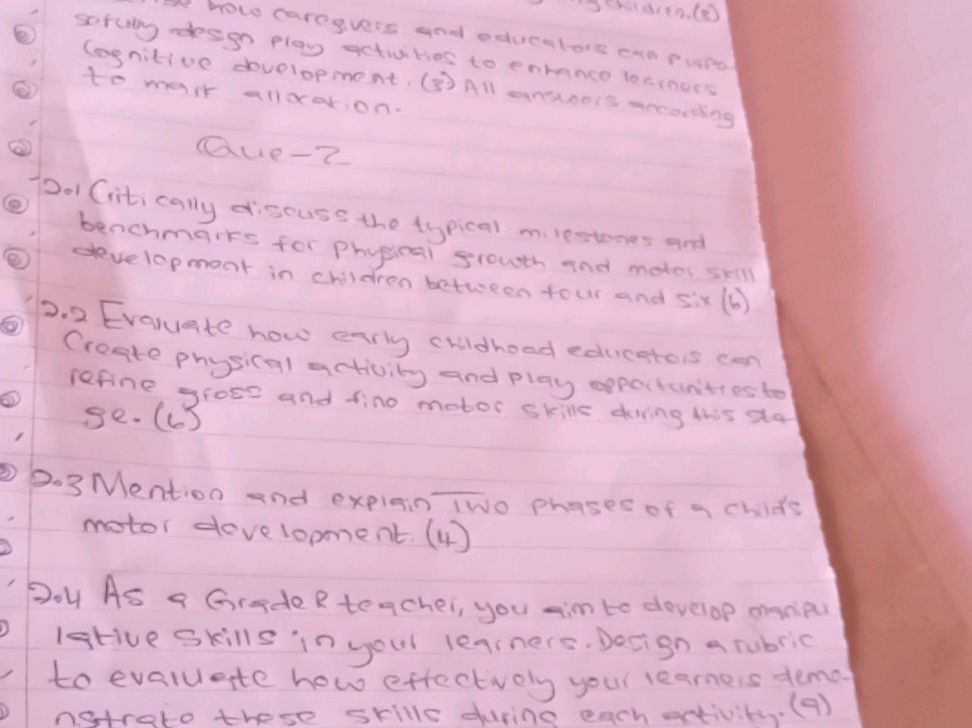 how caregivers and educators can purpo
children.(3)
sefully design play activities to enhance learners
Cognitive development. (3) All answers according
to mark allocation.
Que-2
2.1 Critically discuss the typical milestones and
benchmarks for physical growth and motor skill
development in children between four and six (6)
2.2 Evaluate how early childhood educators can
Create physical activity and play opportunities to
refine gross and fine motor skills during this sta
ge. (6)
2.3 Mention and explain Two phases of a child's
motor development. (4)
2.4 As a Grade R teacher, you aim to develop manipu
lative skills in your learners. Design a rubric
to evaluate how effectively your learners demo-
nstrate these skills during each activity. (9)